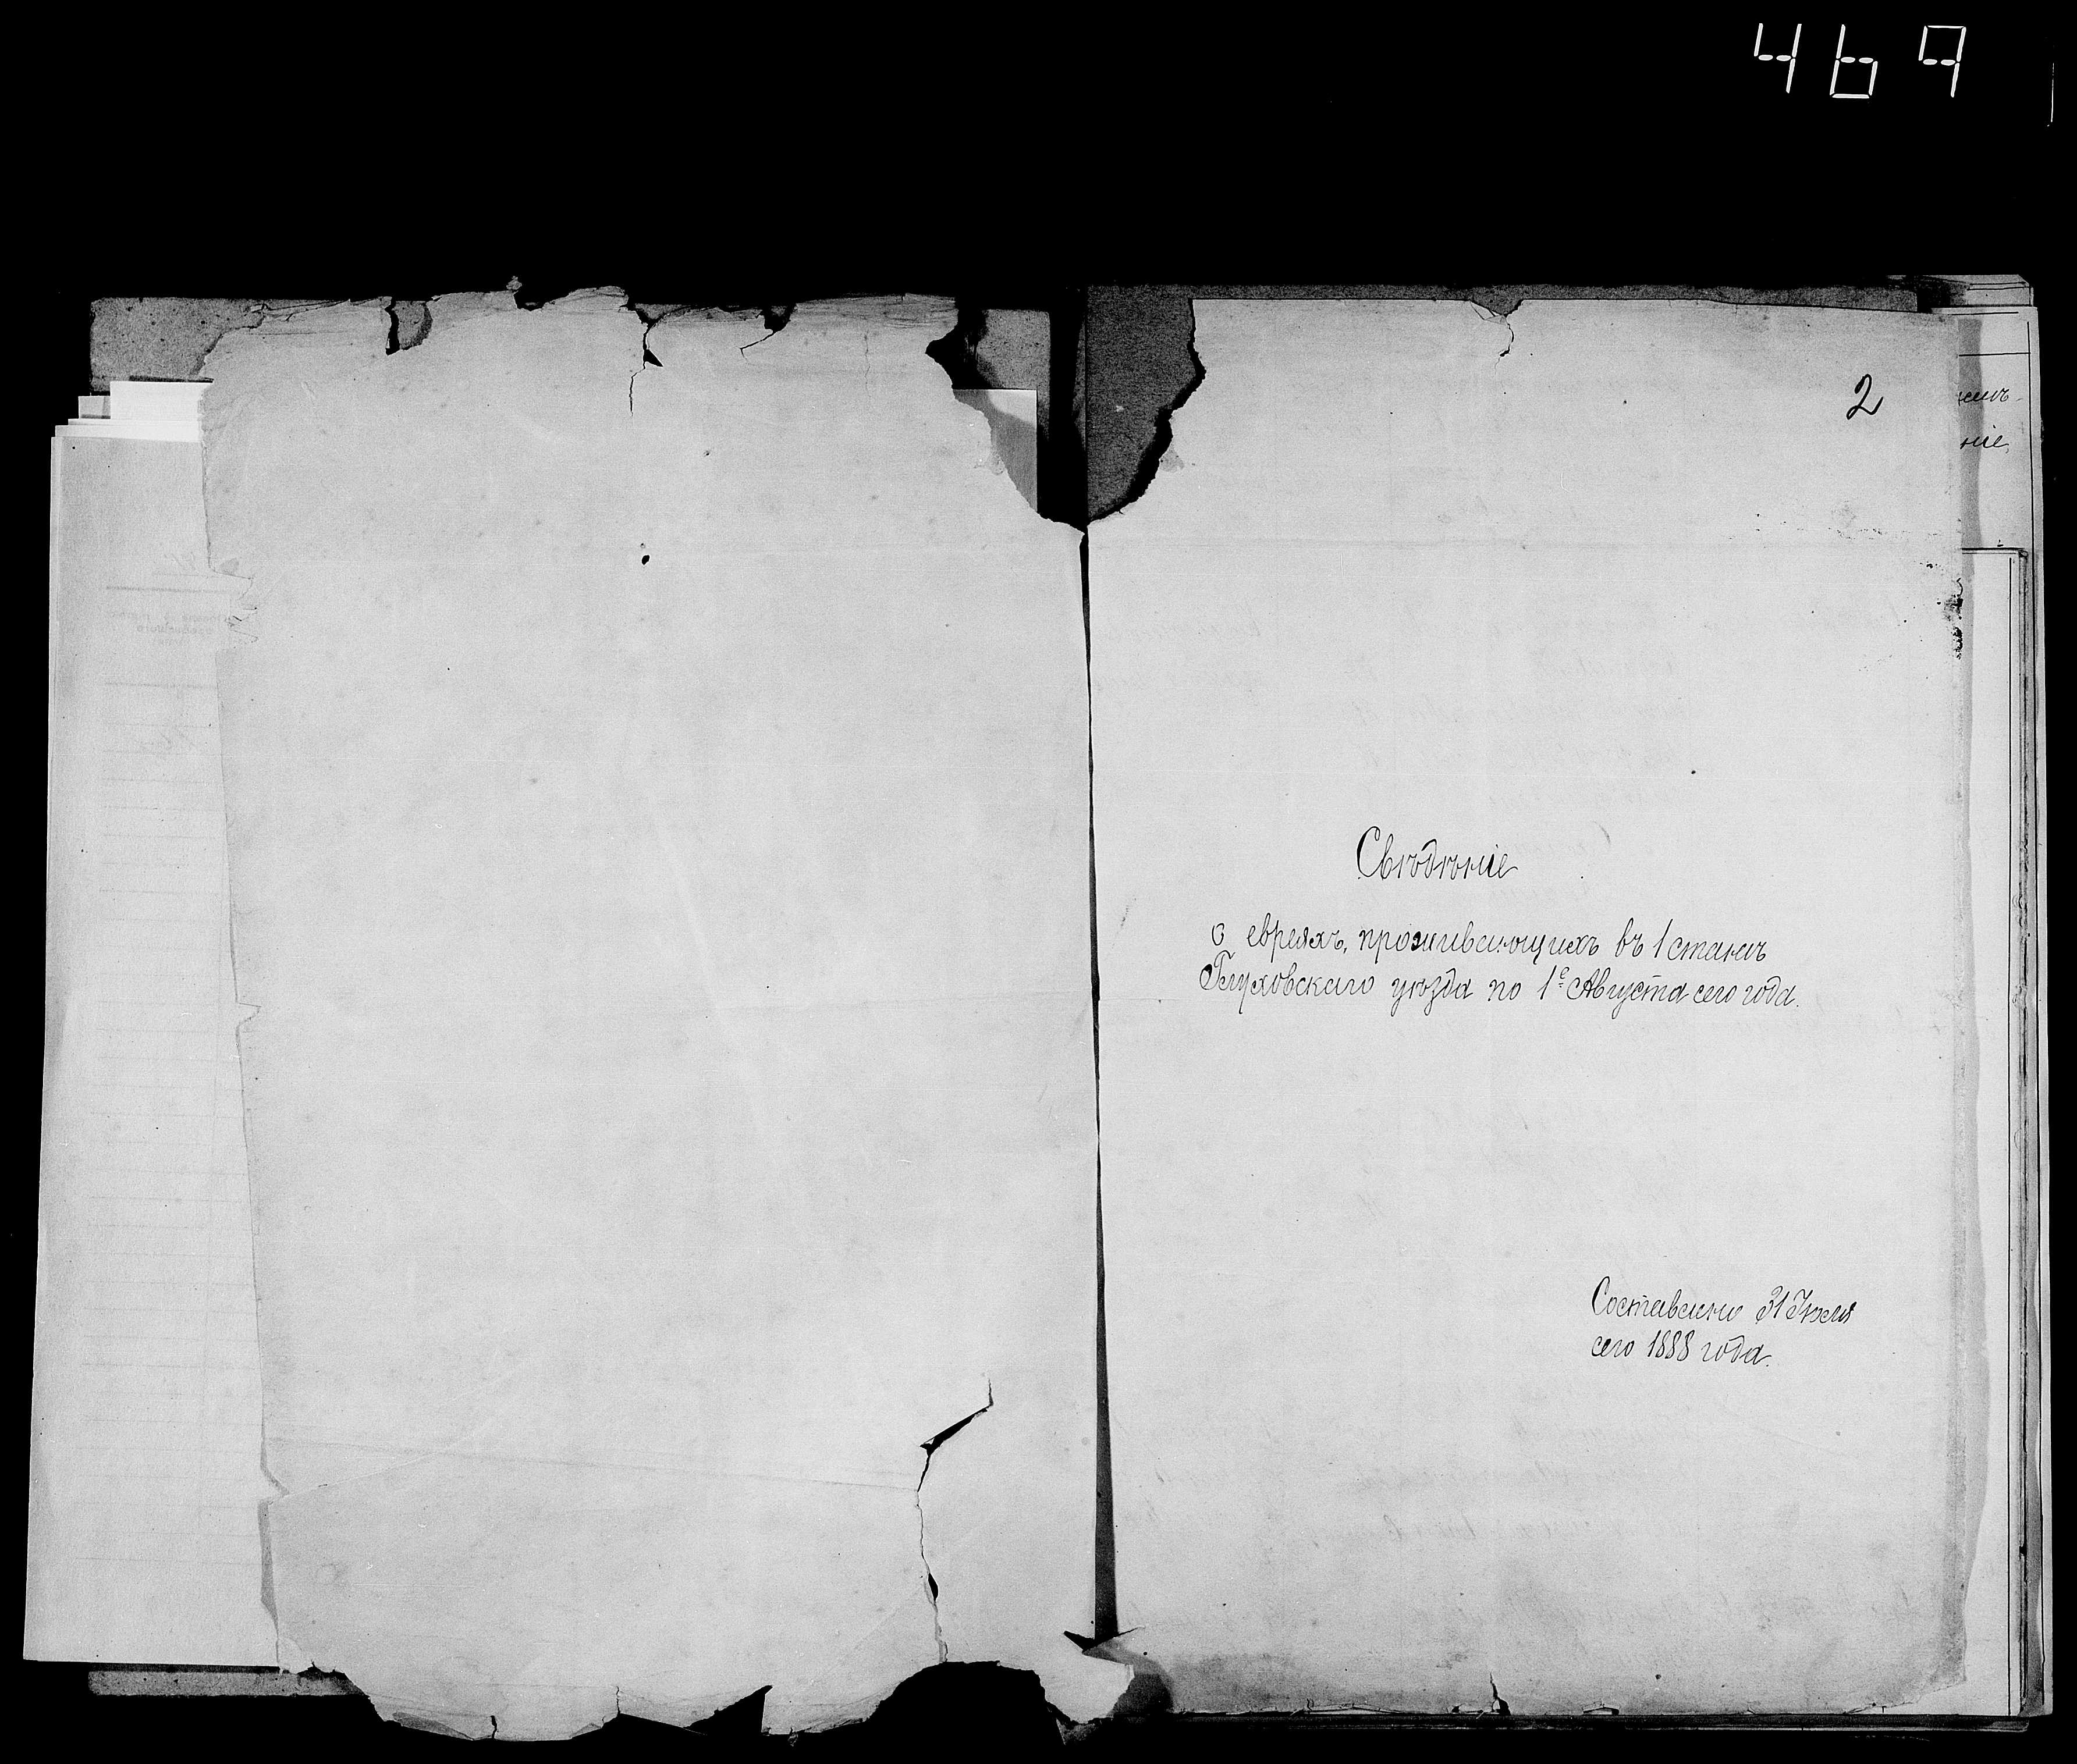 469
2
Свѣдѣніе
о евреяхъ, проживающихъ въ 1 станѣ
Глуховскаго уѣзда по 1е Августа сего года.
Составлено 31 Іюля
сего 1888 года.
ніе,